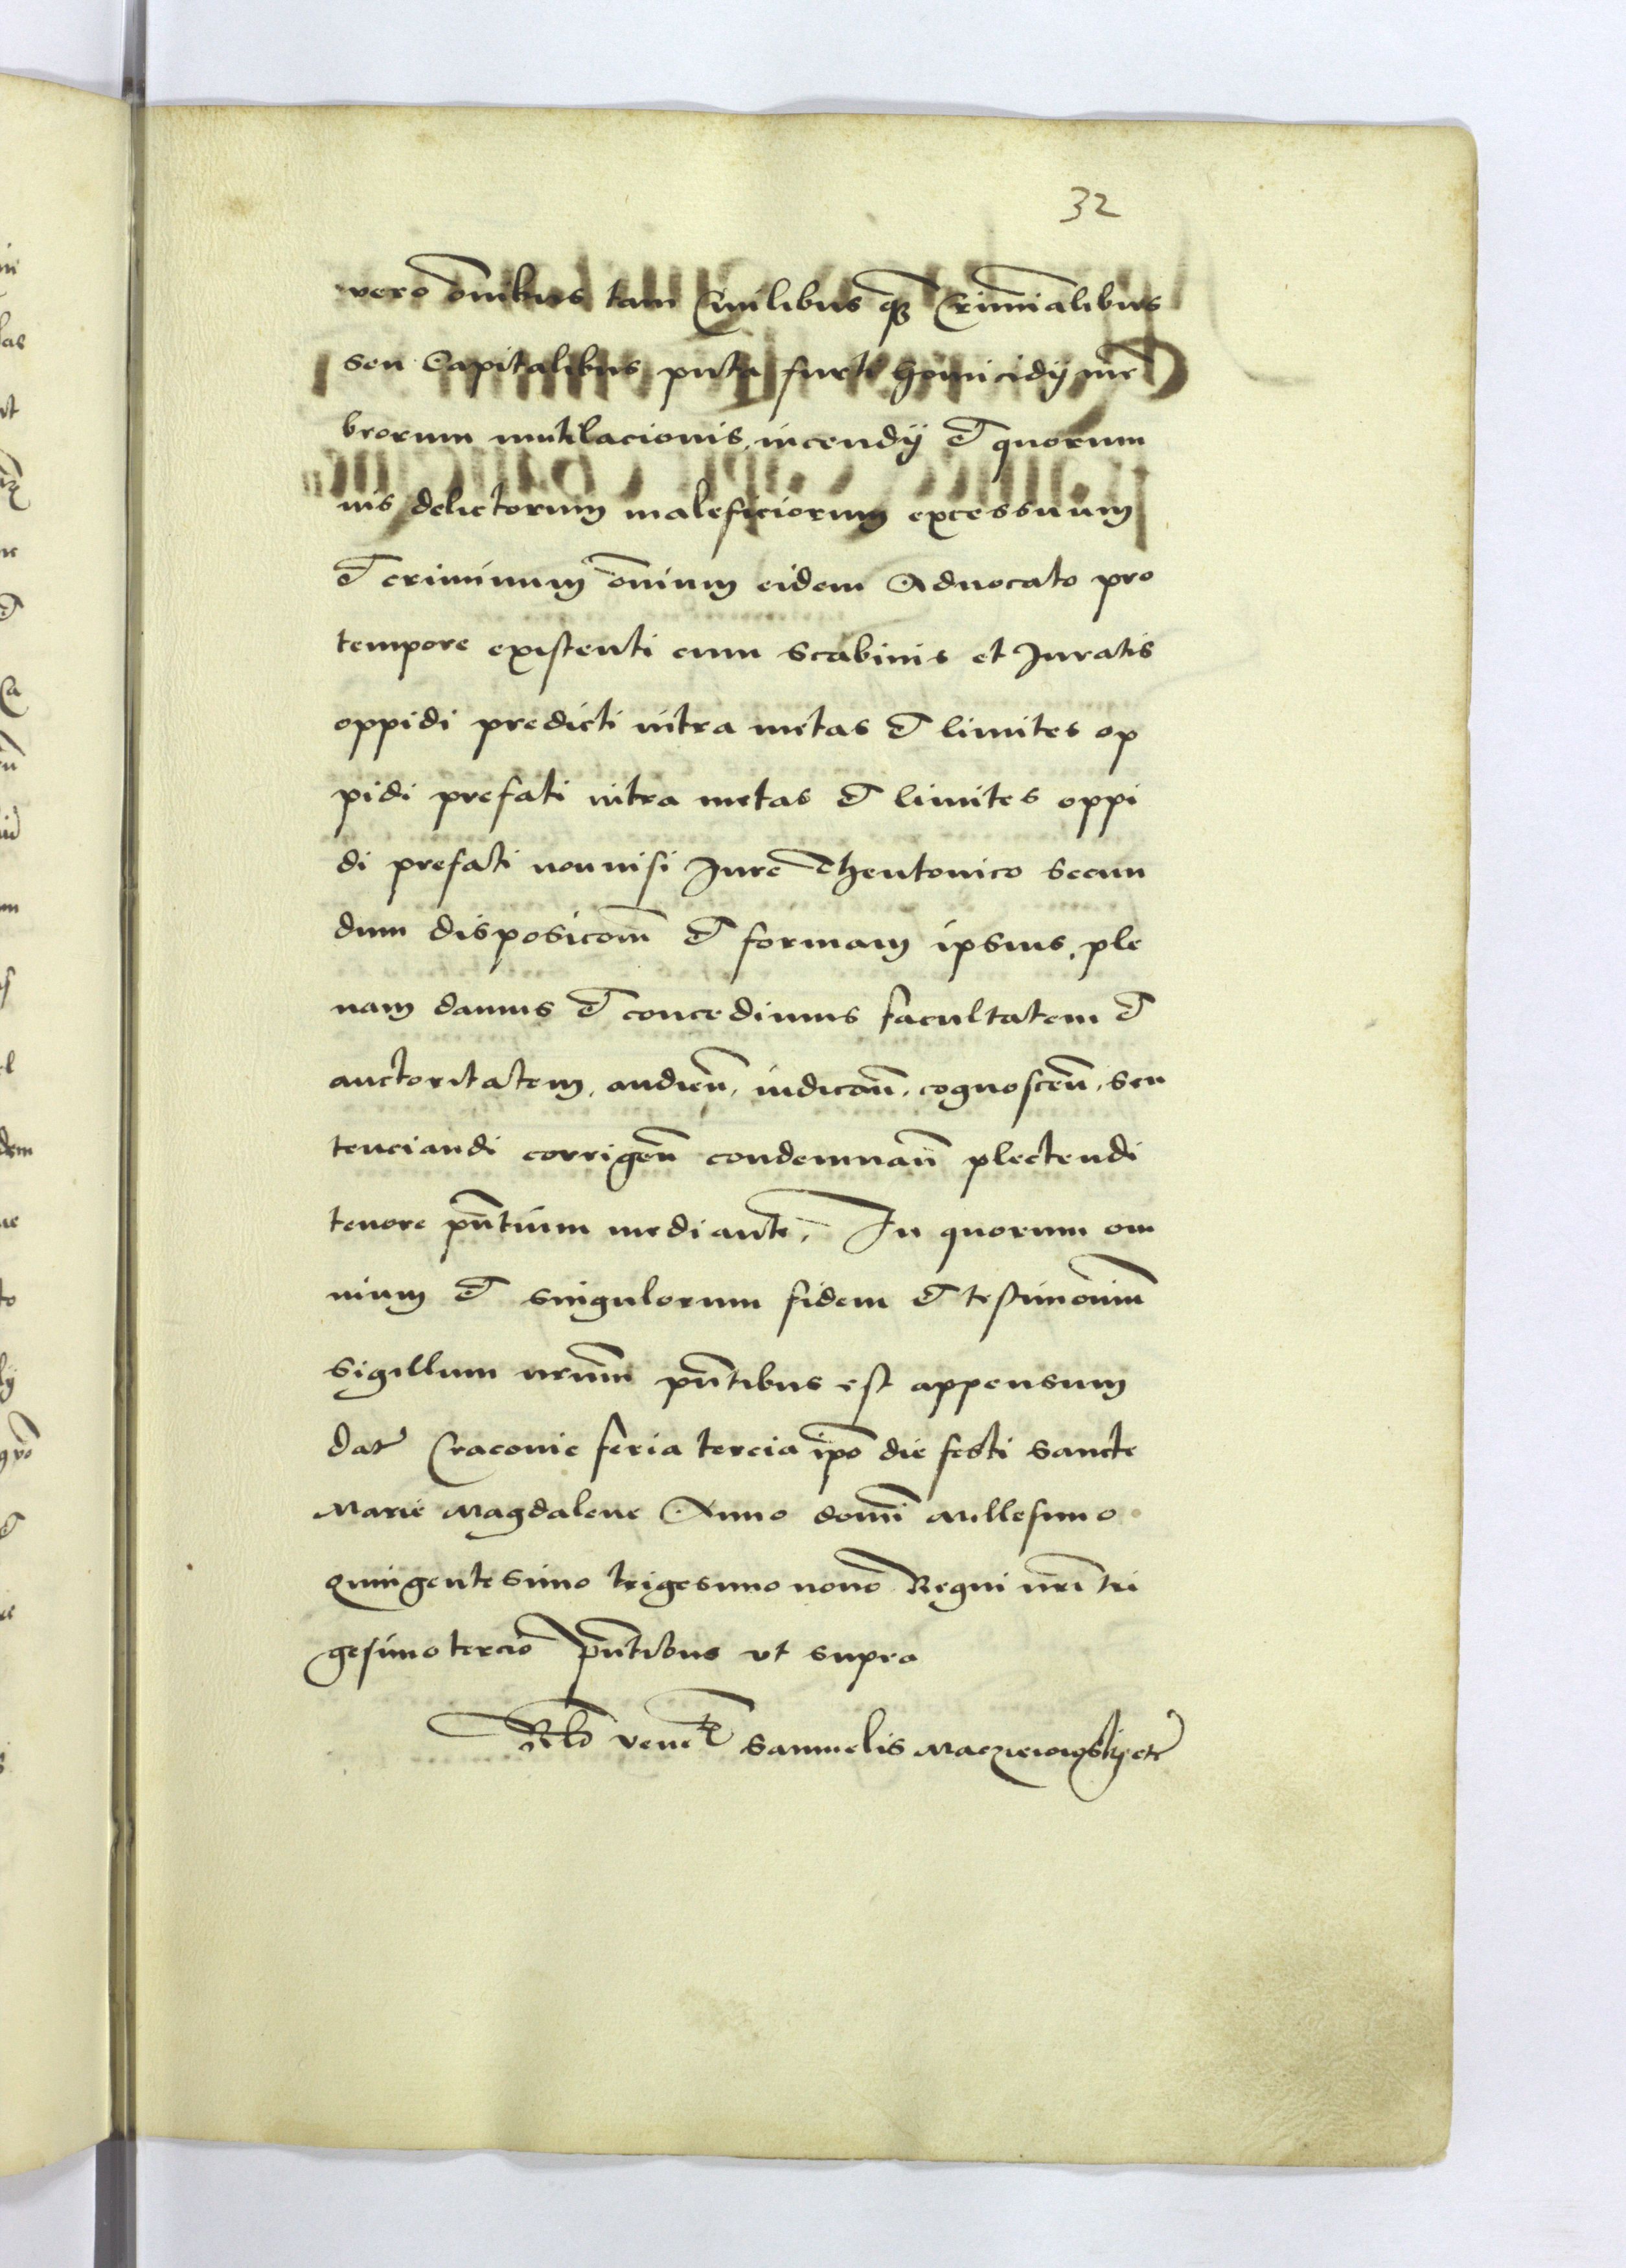 32
vero om̄ibus tam Ciuilibus q̄ȝ Crimīalibus
seu Capitalibus puta furti homicidij mē
brorum mutilacionis, incendij et quorum
uis delictorum maleficiorum excessuum
et criminum om̄ium eidem Aduocato pro
tempore existenti cum Scabinis et Juratis
oppidi predicti intra metas et limites op
pidi prefati intra metas et limites oppi
di prefati non nisi Jure Theutonico secun
dum disposicom̄ et formam ipsius, ple
nam damus et concedimus facultatem et
auctoritatem, audien̄, iudican̄, cognoscen̄, sen
tenciandi corrigen̄ condemnan̄ plectendi
tenore pn̄tium mediante, In quorum om
nium et singulorum fidem et testimoniū
sigillum nr̄um pn̄tibus est appensum
dat̄ Cracouie feria tercia ip̄o die festi Sancte
Marie Magdalene Anno domī Millesimo
quingentesimo trigesimo nono Regni nr̄i tri
gesimo tercio pn̄tibus vt supra
Rl̄o vene᷒ Samuelis Maczieiowskij etc̄